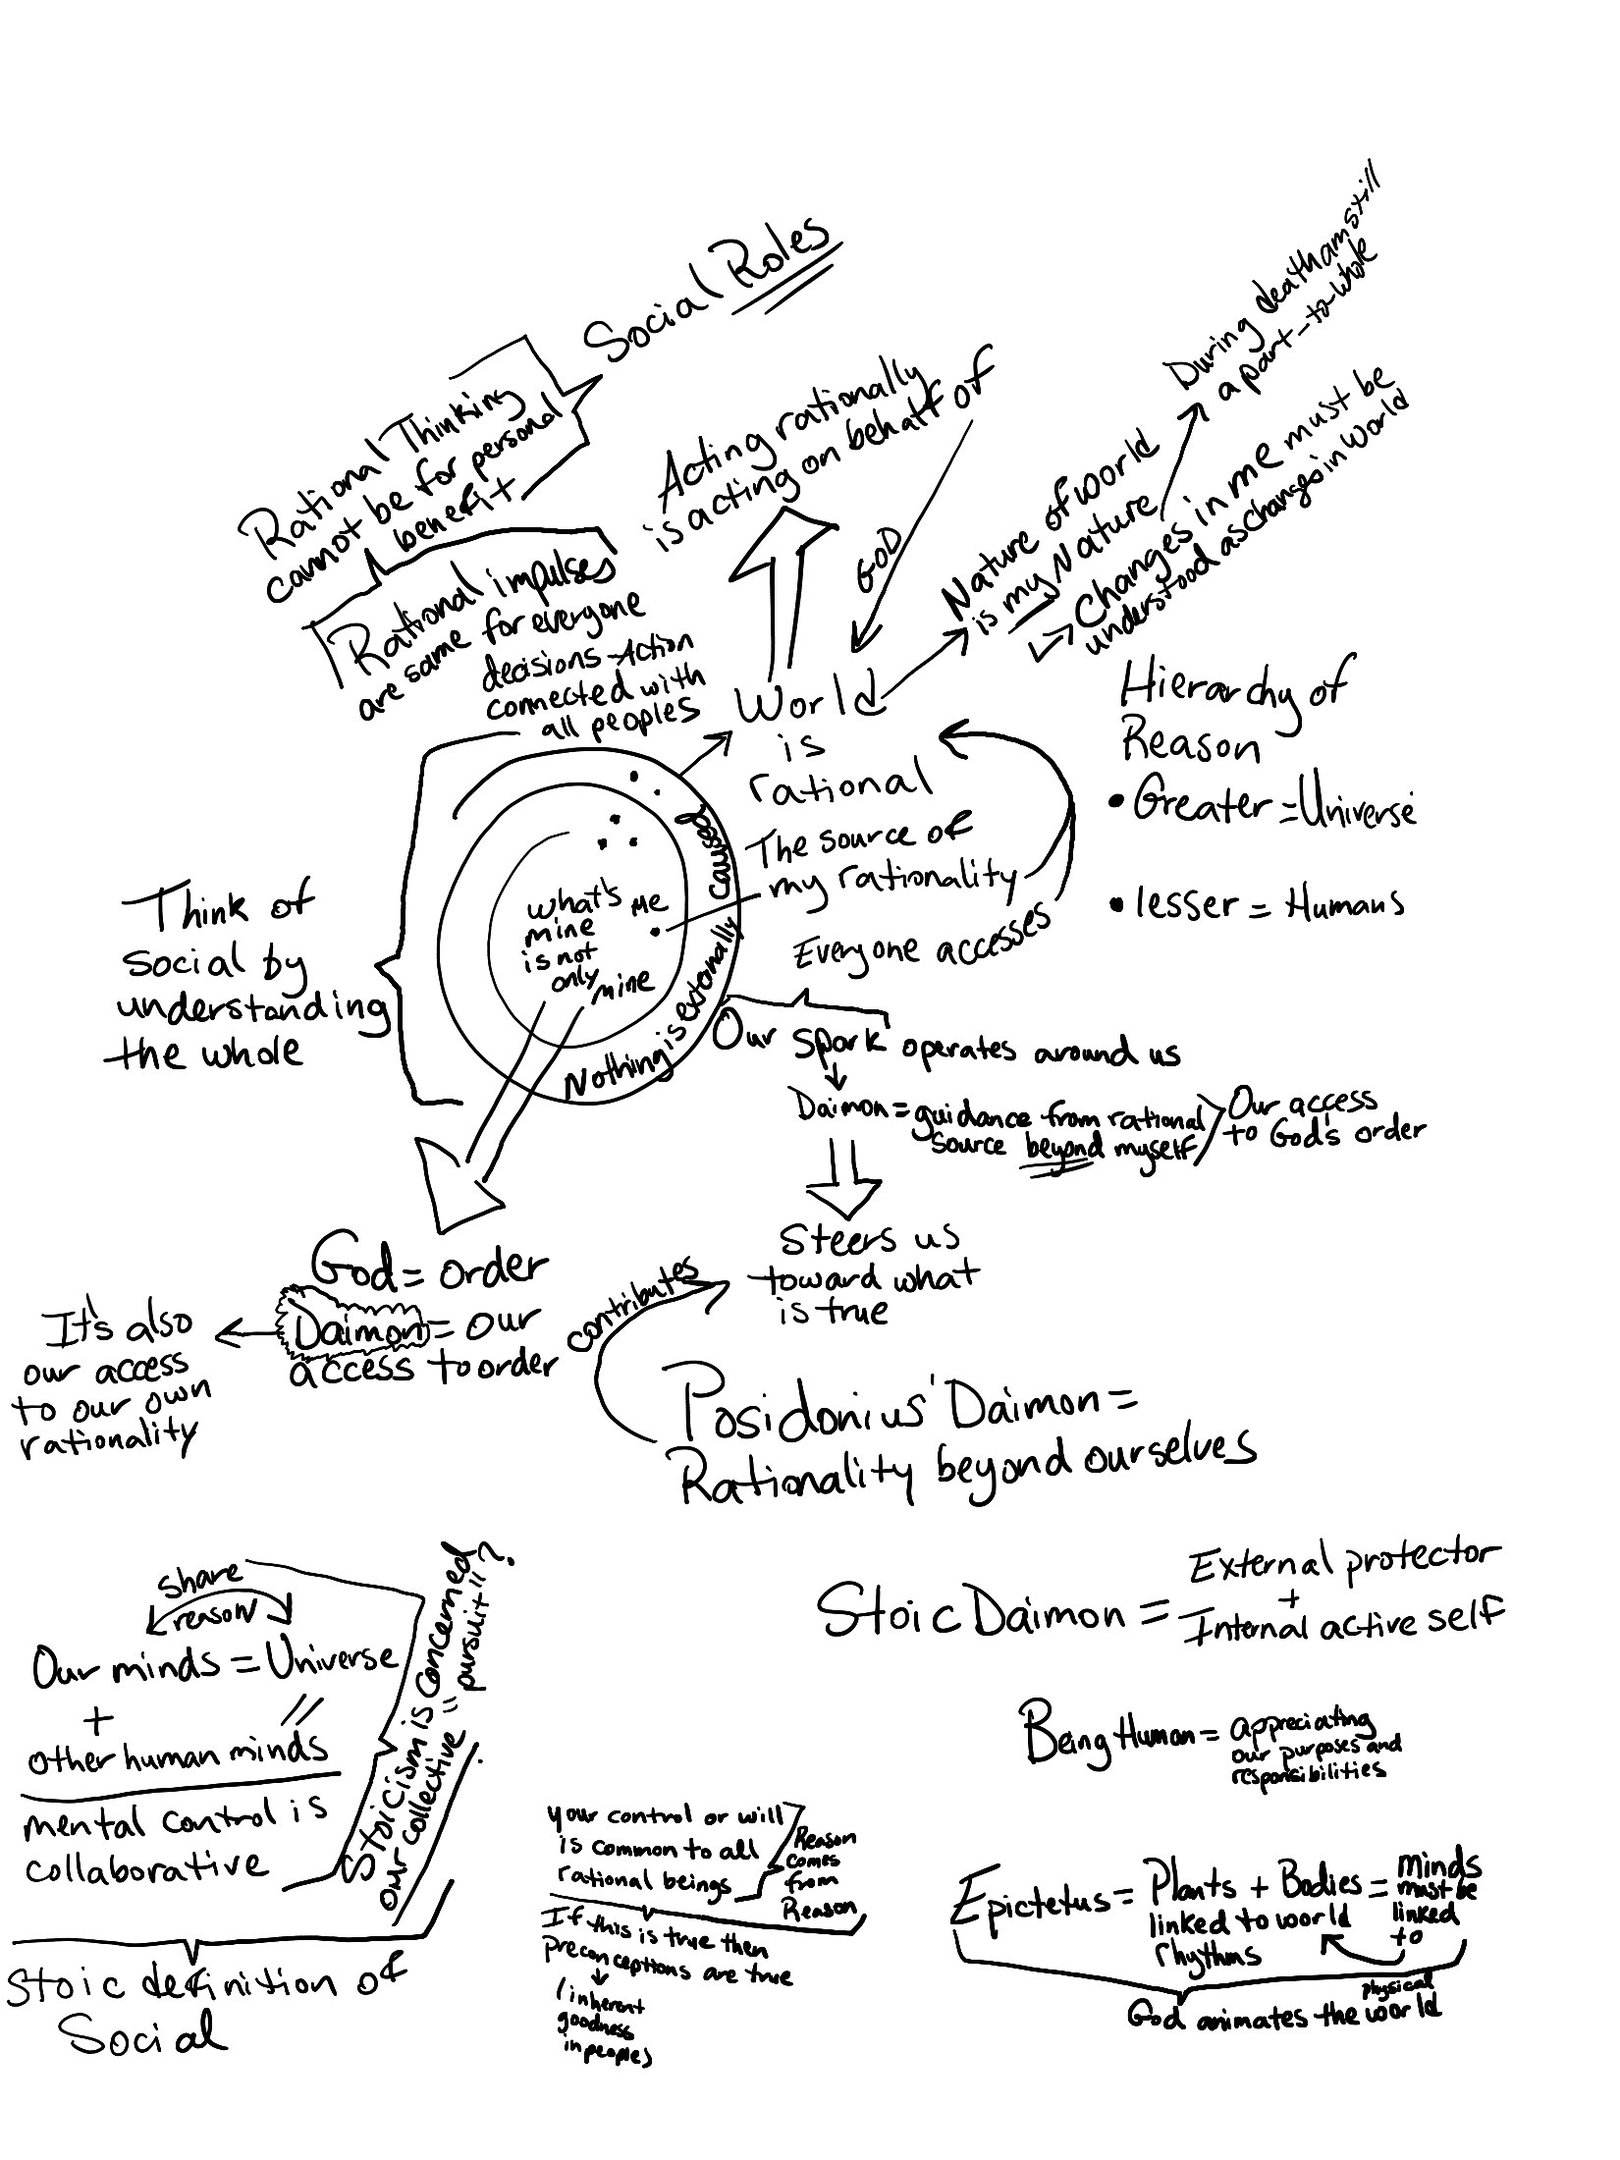 Social Roles
Rational Thinking
cannot be for personal
benefit
Rational impulses
are same for everyone
decisions-Action
connected with
all peoples
Acting rationally
is acting on behalf of
GOD
World
is
rational
Nature of world
is my Nature
During death am still
a part-to-whole
Changes in me must be
understood as changes in World
Hierarchy of
Reason
• Greater = Universe
• lesser = Humans
The source of
my rationality
Everyone accesses
Think of
social by
understanding
the whole
what's
mine
is not
only mine
Me
Nothing is externally caused
Our spark operates around us
Daimon = guidance from rational
source beyond myself
Our access
to God's order
Steers us
toward what
is true
contributes
God = order
Daimon = our
access to order
It's also
our access
to our own
rationality
Posidonius' Daimon =
Rationality beyond ourselves
share
reason
Our minds = Universe
+
other human minds
mental control is
collaborative
Stoicism is concerned
our collective "pursuit"?
Stoic definition of
Social
Stoic Daimon =
External protector
+
Internal active self
Being Human = appreciating
our purposes and
responsibilities
your control or will
is common to all
rational beings
Reason
comes
from
Reason
If this is true then
preconceptions are true
(inherent
goodness
in peoples)
Epictetus = Plants + Bodies =
linked to world
rhythms
minds
must be
linked
to
God animates the physical world